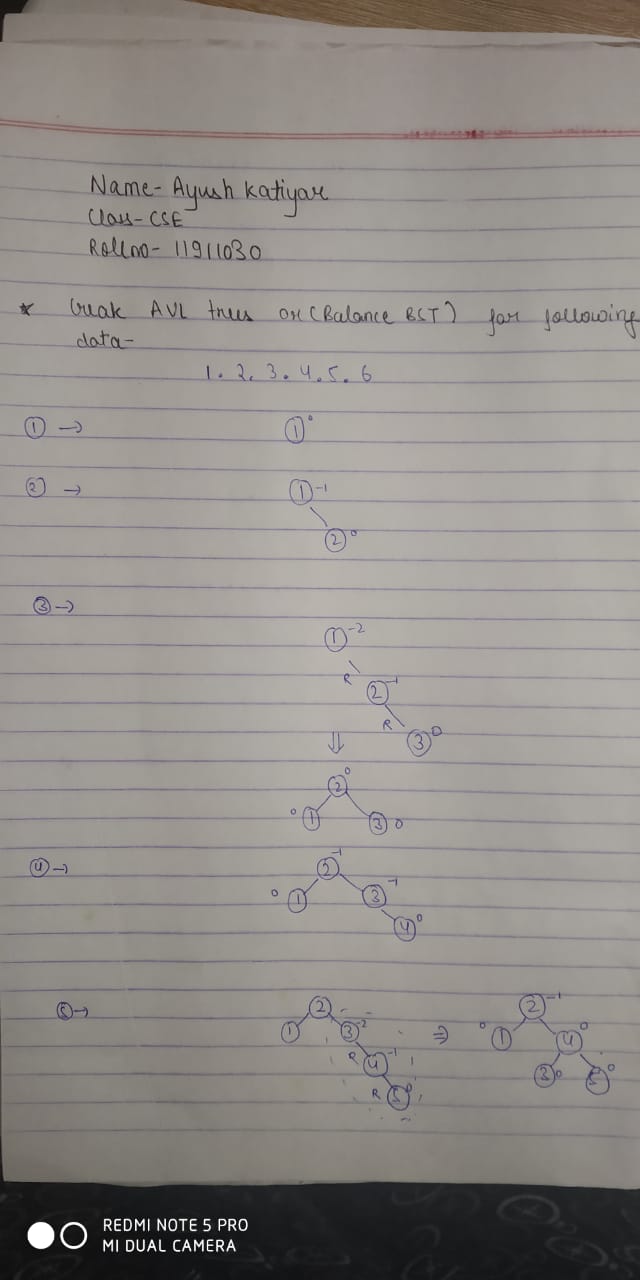 Name- Ayush Katiyar
Class- CSE
Rollno- 11911030
* Creak AVL trees or (Balance BST) for following
data-
1. 2. 3. 4. 5. 6
① → ① 0
② → ① -1
② 0
③ →
① -2
R ② -1
R ③ 0
⇓
② 0
0 ① ③ 0
④ → ② -1
0 ① ③ -1
④ 0
⑤ → ② ⇒ ② -1
① ③ -2 0 ① ④ 0
R ④ -1 ③ 0 ⑤ 0
R ⑤ 0
REDMI NOTE 5 PRO
MI DUAL CAMERA